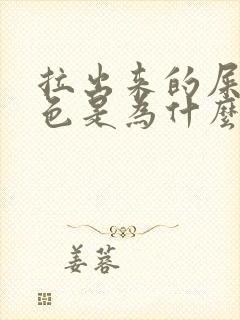 拉出来的屎
色是为什麼
姜蓉